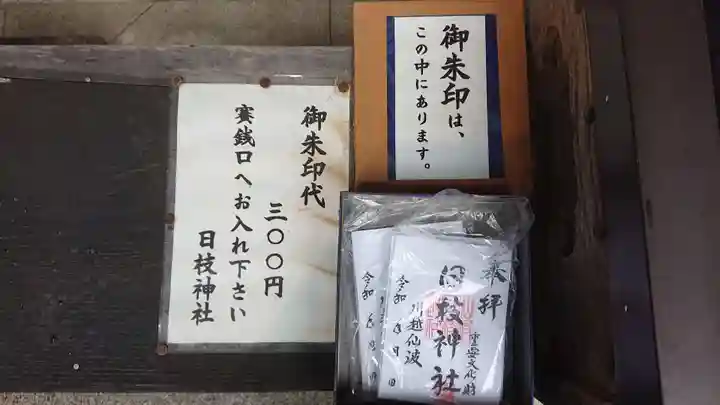 御朱印は、
この中にあります。
御朱印代
三〇〇円
賽銭口へお入れ下さい
日枝神社
奉拝
重要文化財
日枝神社
川越仙波
令和 年 月 日
令和